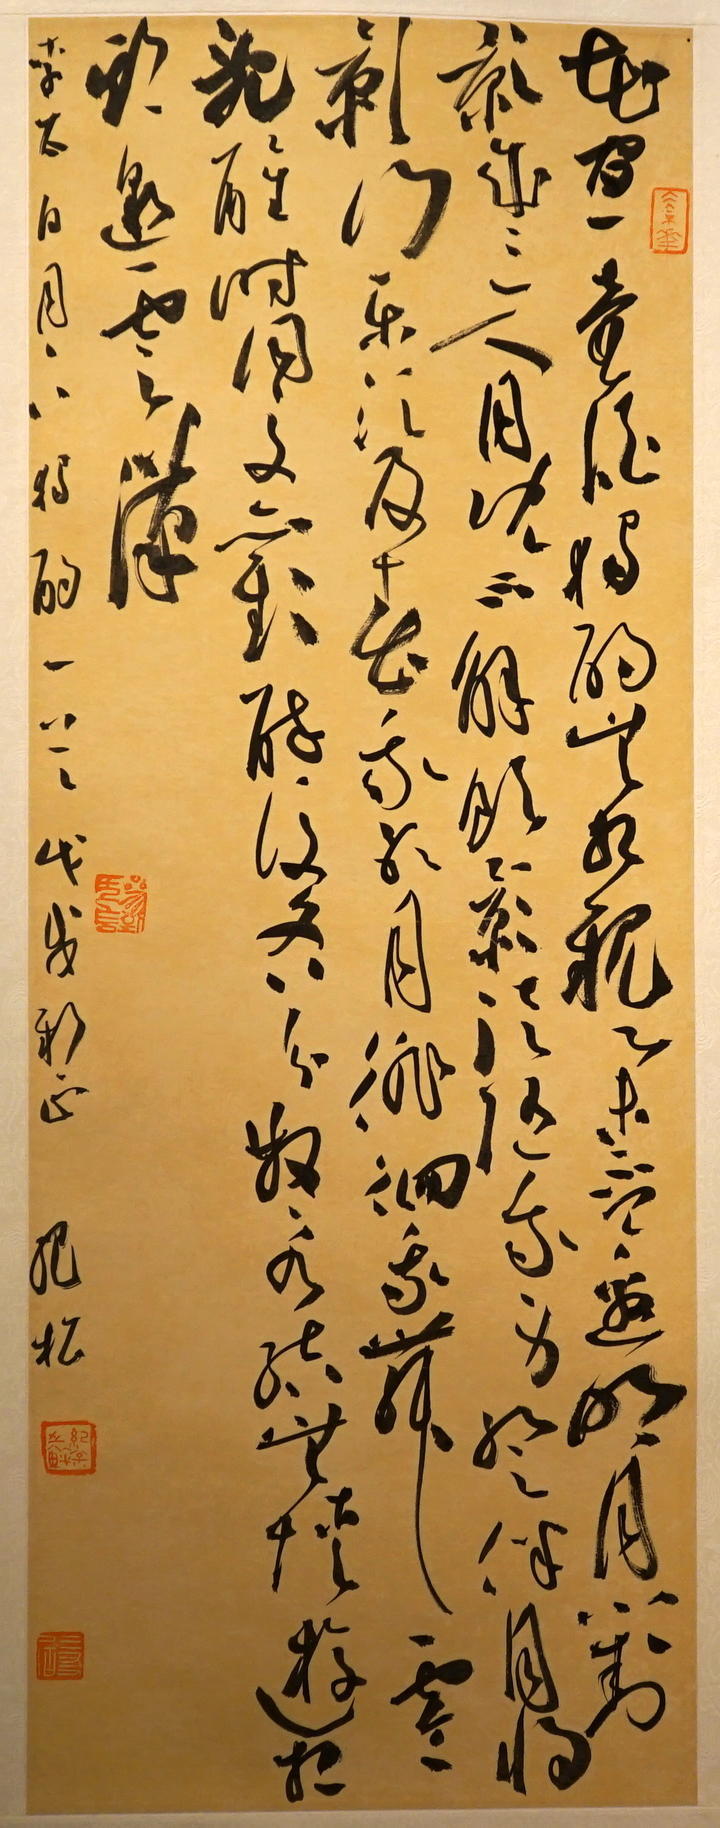 花間一壺酒獨酌無相親舉杯邀明月對
影成三人月既不解飲影徒隨我身暫伴月將
影行樂須及春我歌月徘徊我舞零
亂醒時同交歡醉後各分散永結無情遊相
期邈雲漢
李太白月下獨酌一首 戊戌新正 松